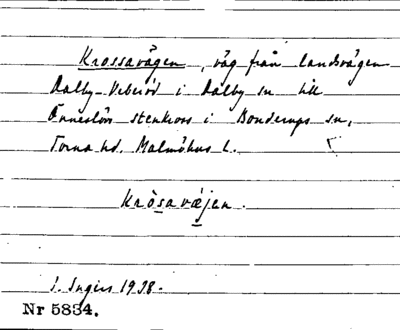 Krossavägen, väg från landsvägen
Dalby-Veberöd i Dalby sn till
Önneslövs stenkross i Bonderups sn,
Torna hd. Malmöhus l.
Kròsavæjen.
I. Ingers 1938.
Nr 5834.